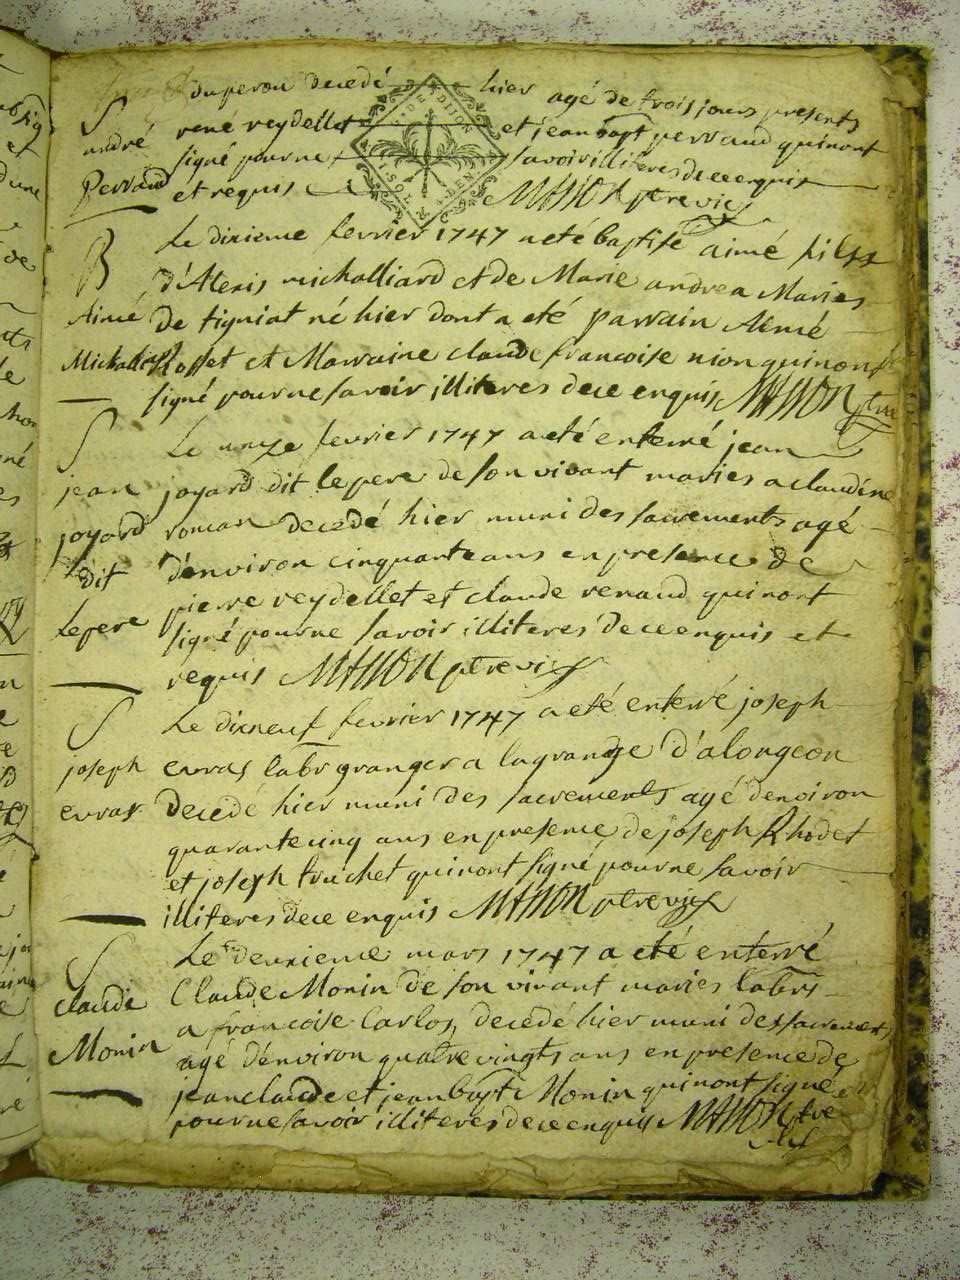 S duperou decedé hier agé de trois jours presents
andré rené reydellet et jean bapt perraud quinont
Perraud signé pour ne savoir illiteres dece enquis
et requis MASSON ptre vic
B Le dixieme fevrier 1747 a eté baptisé aimé fils
d'Alexis michalliard et de Marie andrea Maries
Aimé de tigniat né hier dont a eté parrain Aimé
et Marraine claude francoise nion quinont
signé pour ne savoir illiteres dece enquis MASSON ptre
S Le unze fevrier 1747 a eté enterré jean
jean joyard dit le pere de son vivant maries a claudine
joyard roman decedé hier muni des sacrements agé
dit d'environ cinquante ans en presence de
Lepere pierre reydellet et claude renaud quinont
signé pour ne savoir illiteres dece enquis et
requis MASSON ptre vic
S Le dixneuf fevrier 1747 a eté enterré joseph
joseph evras labr granger a lagrange d'alongeon
evras decedé hier muni des sacrements agé denviron
quarante cinq ans en presence de joseph Rhodet
et joseph truchet quinont signé pour ne savoir
illiteres dece enquis MASSON ptre vic
S Le deuxieme mars 1747 a eté enterré
claude Claude Monin de son vivant maries labrs
a francoise Carlos, decedé hier muni des sacrements
Monin agé d'environ quatre vingts ans en presence de
jean claude et jean bapt Monin quinont signé
pour ne savoir illiteres dece enquis MASSON ptre
vic